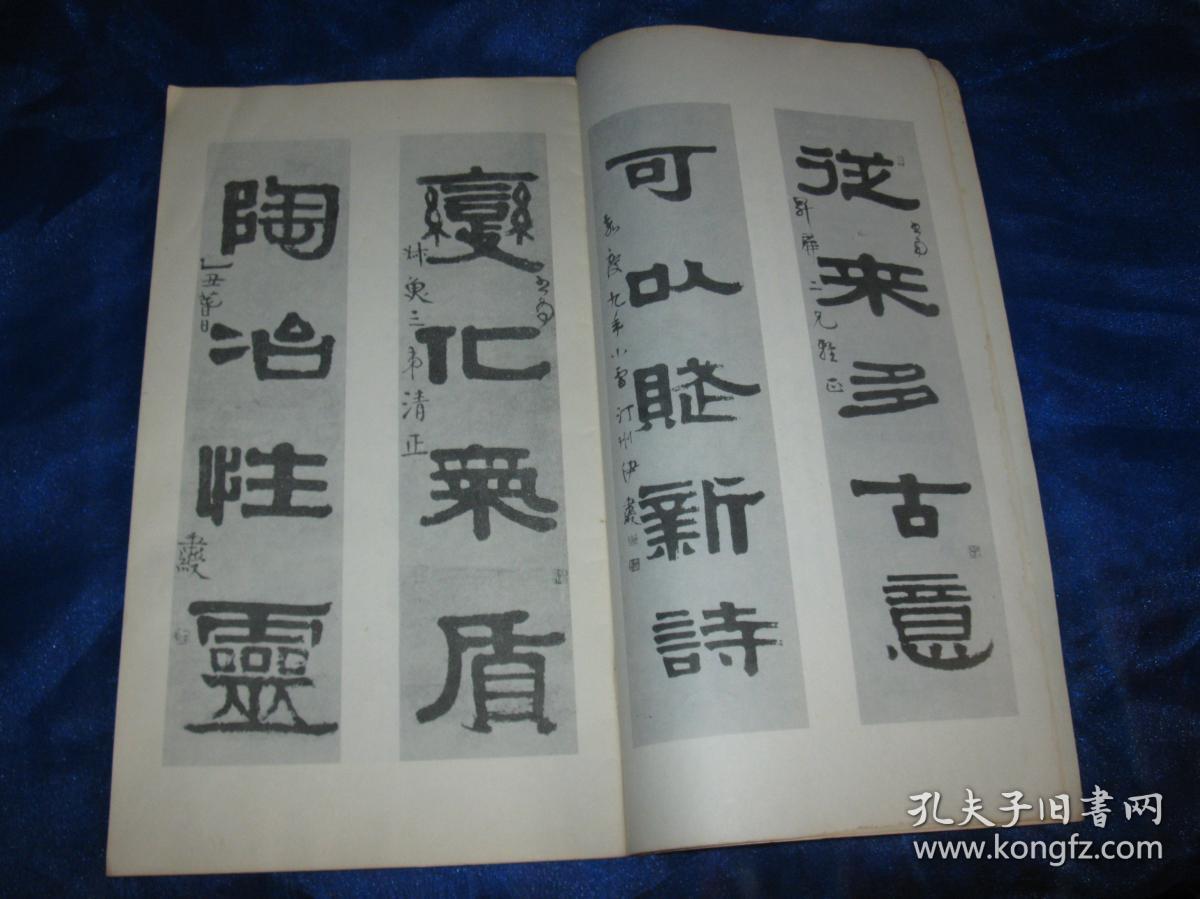 從来多古意
可以賦新詩
嘉慶九年小雪汀州伊秉綬
變化氣質
三弟清正
陶冶性靈
乙丑
秉綬
孔夫子旧書网
www.kongfz.com